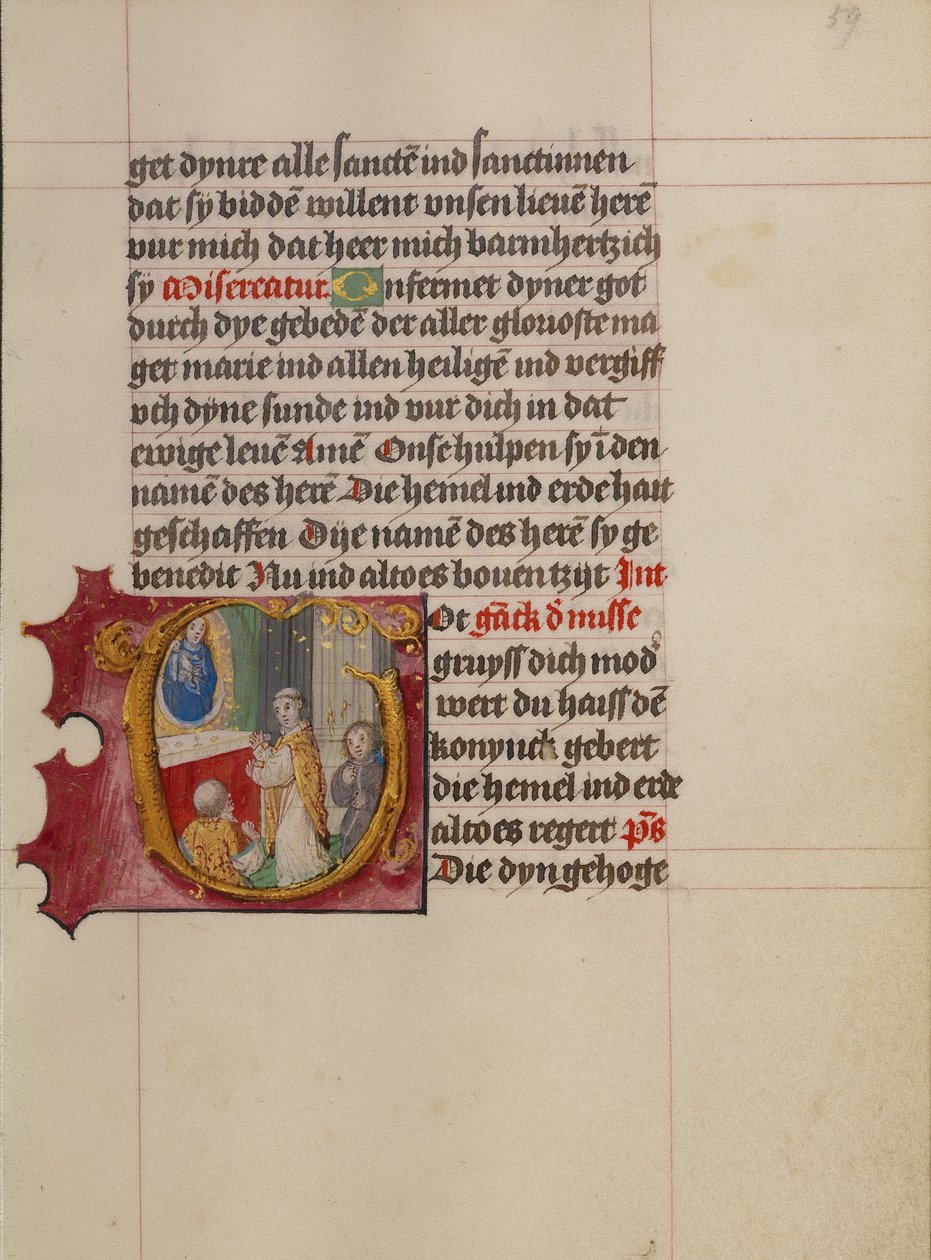 59
get dynre alle sanctē ind sanctinnen
dat sÿ biddē willent vnsen lieuē herē
vur mich dat heer mich barmhertzich
sÿ Misereatur Onfermet dyner got
durch dye gebedē der aller glorioste ma
get marie ind allen heiligē ind vergiff
vch dyne sunde ind vur dich in dat
ewige leuē Amē Onse hulpen sy ī den
namē des herē Die hemel ind erde hait
geschaffen Dÿe namē des herē sy ge
benedit Nu ind altoes bouen tzÿt Int
Ot gāck d' misse
gruyss dich mod'
wert du haiss dē
konynck gebert
die hemel ind erde
altoes regert p̄s
Die dyn gehoge